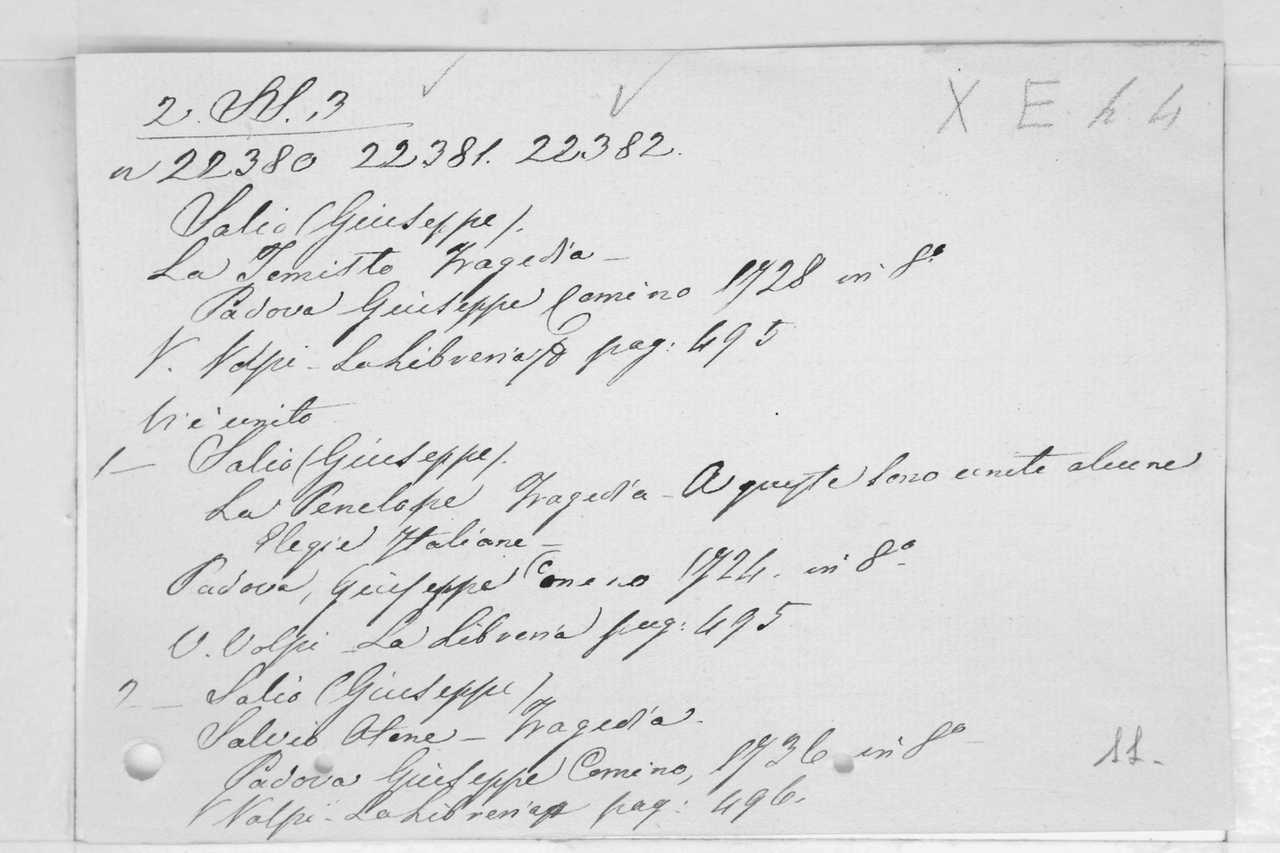 2. Sl. 3
X E h 4
n 22380 22381. 22382.
Salio (Giuseppe).
La Temisto Tragedia —
Padova Giuseppe Comino 1728 in 8°
V. Volpi - La Libreria pag: 495
Vi è unito
1 — Salio (Giuseppe).
La Penelope Tragedia - A queste sono unite alcune
Elegie Italiane —
Padova, Giuseppe Comino 1724. in 8°.
V. Volpi - La Libreria pag: 495
2 — Salio (Giuseppe)
Salvio Otone — Tragedia.
Padova Giuseppe Comino, 1736 in 8° —
V Volpi - La Libreria pag: 496.
11.